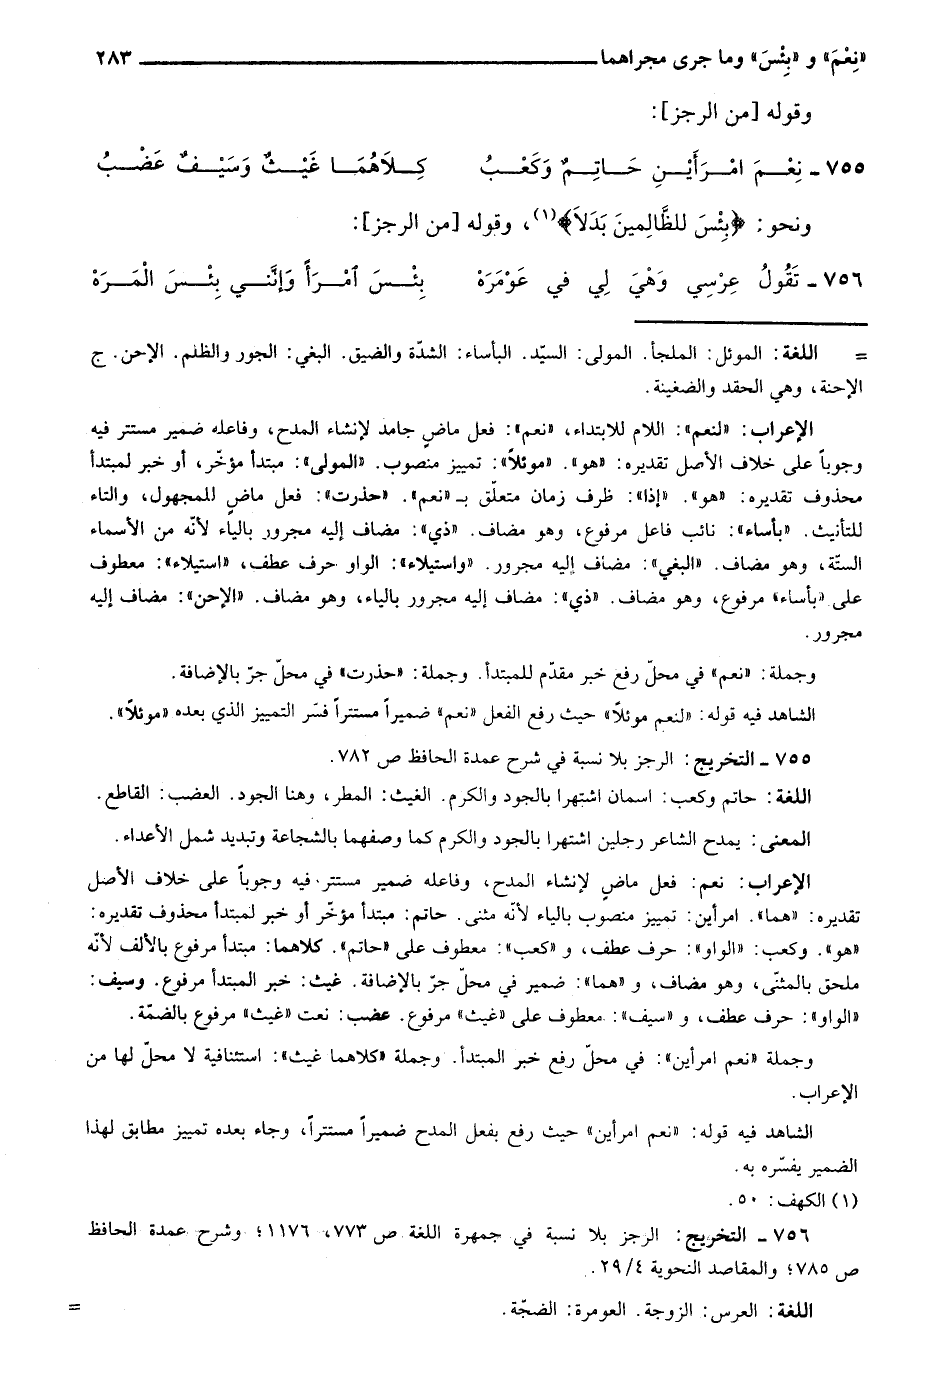 «نِعْمَ» و «بِئْسَ» وما جرى مجراهما ــــــــــــــــــــــــــــ ٢٨٣
وقوله [من الرجز]:
٧٥٥ ـ نِعْـمَ امْـرَأَيْـنِ حَـاتِـمٌ وَكَعْـبُ كِـلاَهُمَـا غَيْـثٌ وَسَيْـفٌ عَضْـبُ
ونحو: ﴿بِئْسَ للظَّالِمينَ بَدَلاَ﴾(١)، وقوله [من الرجز]:
٧٥٦ ـ تَقُولُ عِرْسِي وَهْيَ لِي في عَوْمَرَهْ بِئْـسَ ٱمْـرَأً وَإِنَّنـي بِئْـسَ الْمَـرَهْ
= اللغة: الموئل: الملجأ. المولى: السيّد. البأساء: الشدّة والضيق. البغي: الجور والظلم. الإحن. ج
الإحنة، وهي الحقد والضغينة.
الإعراب: «لنعم»: اللام للابتداء، «نعم»: فعل ماضٍ جامد لإنشاء المدح، وفاعله ضمير مستتر فيه
وجوباً على خلاف الأصل تقديره: «هو». «موئلاً»: تمييز منصوب. «المولى»: مبتدأ مؤخّر، أو خبر لمبتدأ
محذوف تقديره: «هو». «إذا»: ظرف زمان متعلّق بـ «نعم». «حذرت»: فعل ماضٍ للمجهول، والتاء
للتأنيث. «بأساء»: نائب فاعل مرفوع، وهو مضاف. «ذي»: مضاف إليه مجرور بالياء لأنّه من الأسماء
الستّة، وهو مضاف. «البغي»: مضاف إليه مجرور. «واستيلاء»: الواو حرف عطف، «استيلاء»: معطوف
على «بأساء» مرفوع، وهو مضاف. «ذي»: مضاف إليه مجرور بالياء، وهو مضاف. «الإحن»: مضاف إليه
مجرور.
وجملة: «نعم» في محلّ رفع خبر مقدّم للمبتدأ. وجملة: «حذرت» في محلّ جرّ بالإضافة.
الشاهد فيه قوله: «لنعم موئلاً» حيث رفع الفعل «نعم» ضميراً مستتراً فسّر التمييز الذي بعده «موئلاً».
٧٥٥ ـ التخريج: الرجز بلا نسبة في شرح عمدة الحافظ ص ٧٨٢.
اللغة: حاتم وكعب: اسمان اشتهرا بالجود والكرم. الغيث: المطر، وهنا الجود. العضب: القاطع.
المعنى: يمدح الشاعر رجلين اشتهرا بالجود والكرم كما وصفهما بالشجاعة وتبديد شمل الأعداء.
الإعراب: نعم: فعل ماضٍ لإنشاء المدح، وفاعله ضمير مستتر فيه وجوباً على خلاف الأصل
تقديره: «هما». امرأين: تمييز منصوب بالياء لأنّه مثنى. حاتم: مبتدأ مؤخّر أو خبر لمبتدأ محذوف تقديره:
«هو». وكعب: «الواو»: حرف عطف، و «كعب»: معطوف على «حاتم». كلاهما: مبتدأ مرفوع بالألف لأنّه
ملحق بالمثنّى، وهو مضاف، و «هما»: ضمير في محلّ جرّ بالإضافة. غيث: خبر المبتدأ مرفوع. وسيف:
«الواو»: حرف عطف، و «سيف»: معطوف على «غيث» مرفوع. عضب: نعت «غيث» مرفوع بالضمّة.
وجملة «نعم امرأين»: في محلّ رفع خبر المبتدأ. وجملة «كلاهما غيث»: استئنافية لا محلّ لها من
الإعراب.
الشاهد فيه قوله: «نعم امرأين» حيث رفع بفعل المدح ضميراً مستتراً، وجاء بعده تمييز مطابق لهذا
الضمير يفسّره به.
(١) الكهف: ٥٠.
٧٥٦ ـ التخريج: الرجز بلا نسبة في جمهرة اللغة ص ٧٧٣، ١١٧٦؛ وشرح عمدة الحافظ
ص ٧٨٥؛ والمقاصد النحوية ٤/ ٢٩.
اللغة: العرس: الزوجة. العومرة: الضجّة. =